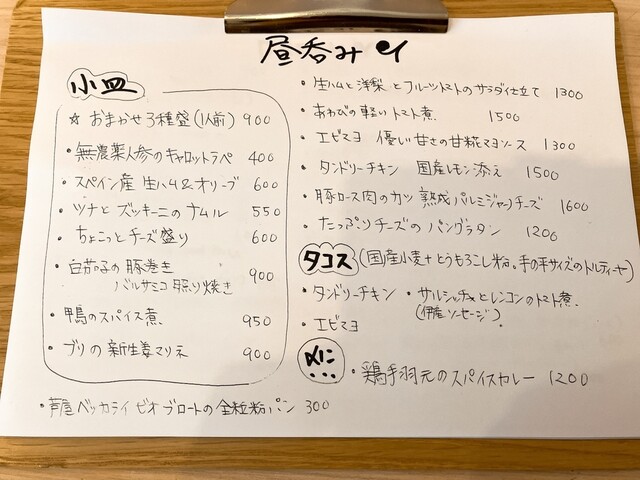 昼呑み
小皿
☆ おまかせ3種盛(1人前) 900
・無農薬人参のキャロットラペ 400
・スペイン産 生ハム&オリーブ 600
・ツナと ズッキーニの ナムル 550
・ちょこっとチーズ盛り 600
・白茄子の 豚巻き
バルサミコ 照り焼き 900
・鴨のスパイス煮 950
・ブリの 新生姜マリネ 900
・芦屋 ベッカライ ビオブロートの 全粒粉パン 300
・生ハムと 洋梨 と フルーツトマトの サラダ仕立て 1300
・あわびの 軽い トマト煮 1500
・エビマヨ 優しい甘さの甘糀マヨソース 1300
・タンドリーチキン 国産レモン添え 1500
・豚ロース肉のカツ 熟成パルミジャーノチーズ 1600
・たっぷりチーズの パングラタン 1200
タコス (国産小麦+とうもろこし粉。手の平サイズのトルティーヤ)
・タンドリーチキン ・サルシッチャとレンコンのトマト煮。
(伊産ソーセージ)
・エビマヨ
〆に…
・鶏手羽元のスパイスカレー 1200